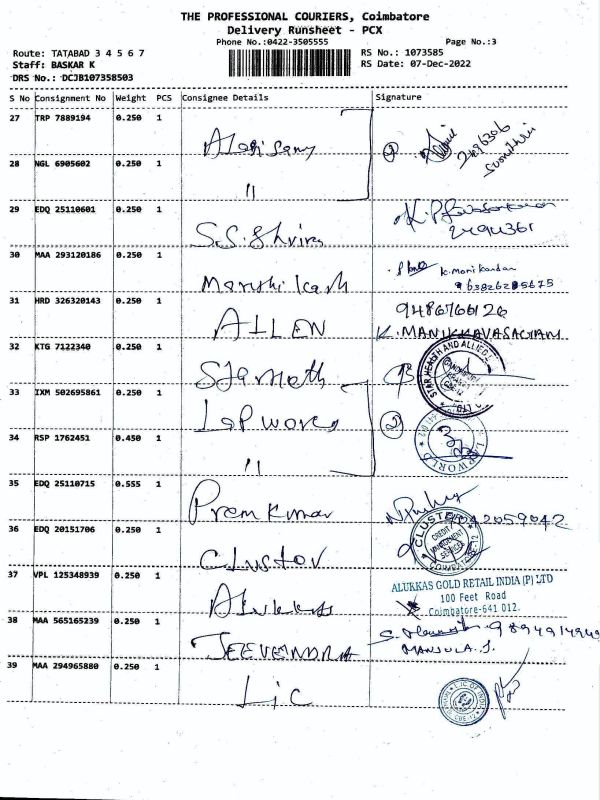 THE PROFESSIONAL COURIERS, Coimbatore
Delivery Runsheet - PCX
Phone No.:0422-3505555
Page No.:3
Route: TATABAD 3 4 5 6 7
RS No.: 1073585
Staff: BASKAR K
RS Date: 07-Dec-2022
DRS No.: DCJB107358503
S No Consignment No Weight PCS Consignee Details Signature
27 TRP 7889194 0.250 1
Alagisamy
28 NGL 6905602 0.250 1
"
29 EDQ 25110601 0.250 1
S.S.Shrira
30 MAA 293120186 0.250 1
k.manikandan
31 HRD 326320143 0.250 1
ALLEN
K.MANIKKAVASAGAM
32 KTG 7122340 0.250 1
STAR HEALTH AND ALLIED
33 IXM 502695861 0.250 1
Lap world
34 RSP 1762451 0.450 1
"
LAP WORLD
35 EDQ 25110715 0.555 1
Prem Kumar
36 EDQ 20151706 0.250 1
Clustor
CLUSTER
CREDIT MANAGEMENT SERVICES
37 VPL 125348939 0.250 1
Alukkas
ALUKKAS GOLD RETAIL INDIA (P) LTD
100 Feet Road
Coimbatore-641 012.
38 MAA 565165239 0.250 1
JEEVENDRA
MANJULA.S.
39 MAA 294965880 0.250 1
Lic
LIC OF INDIA